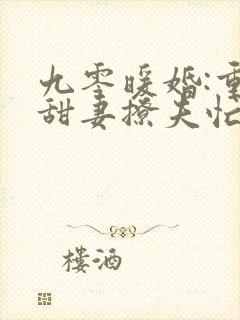 九零暖婚:重
甜妻撩夫忙
楼酒